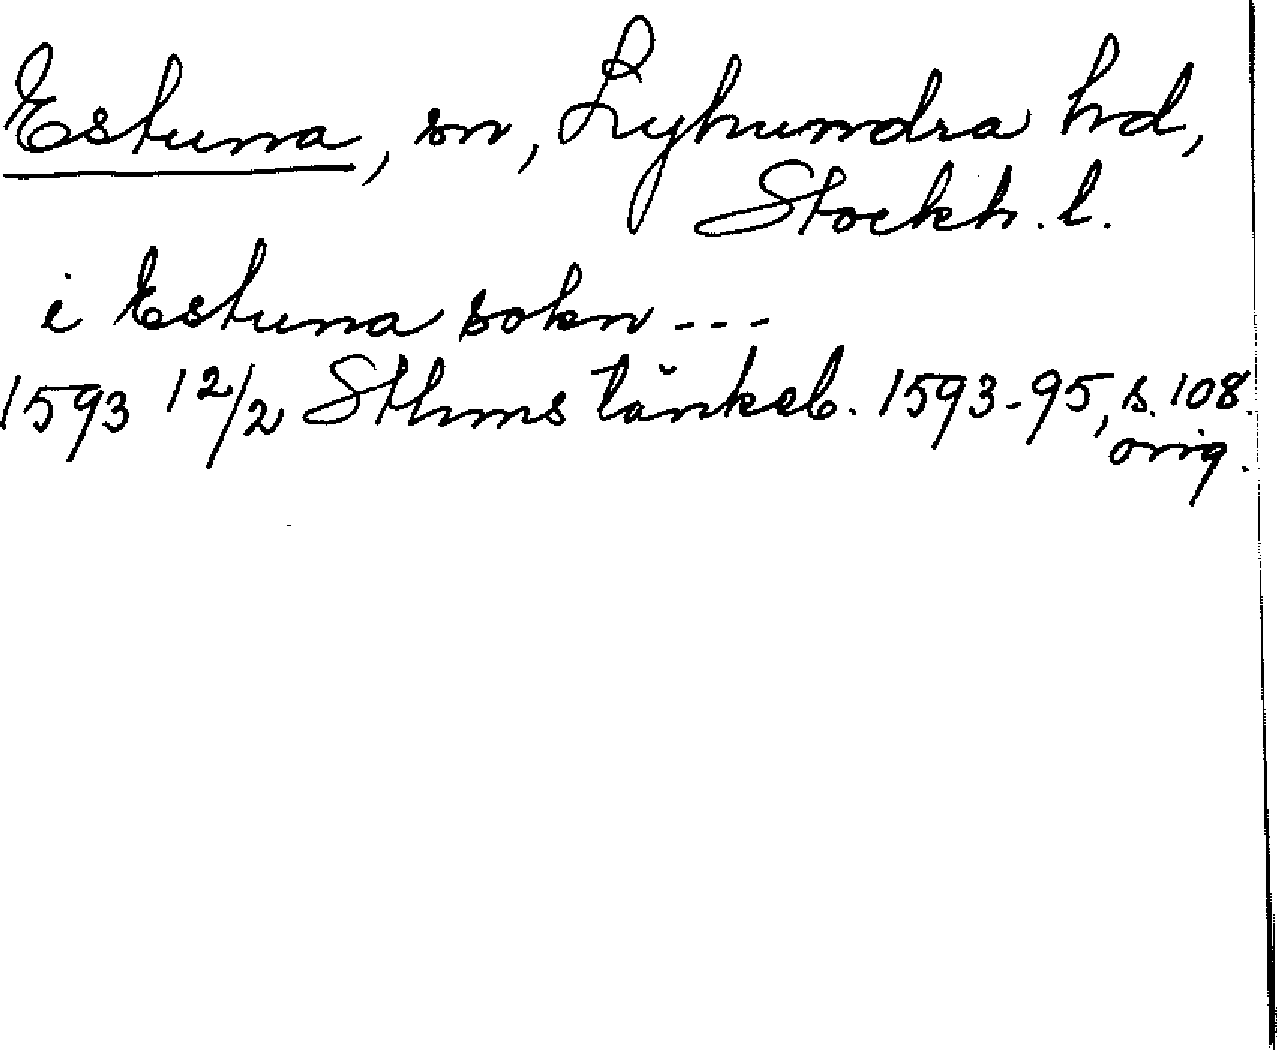 Estuna, sn, Lyhundra hd,
Stockh. l.
i Estuna sokn ---
1593 12/2 Sthms tänkeb. 1593-95, s. 108.
orig.